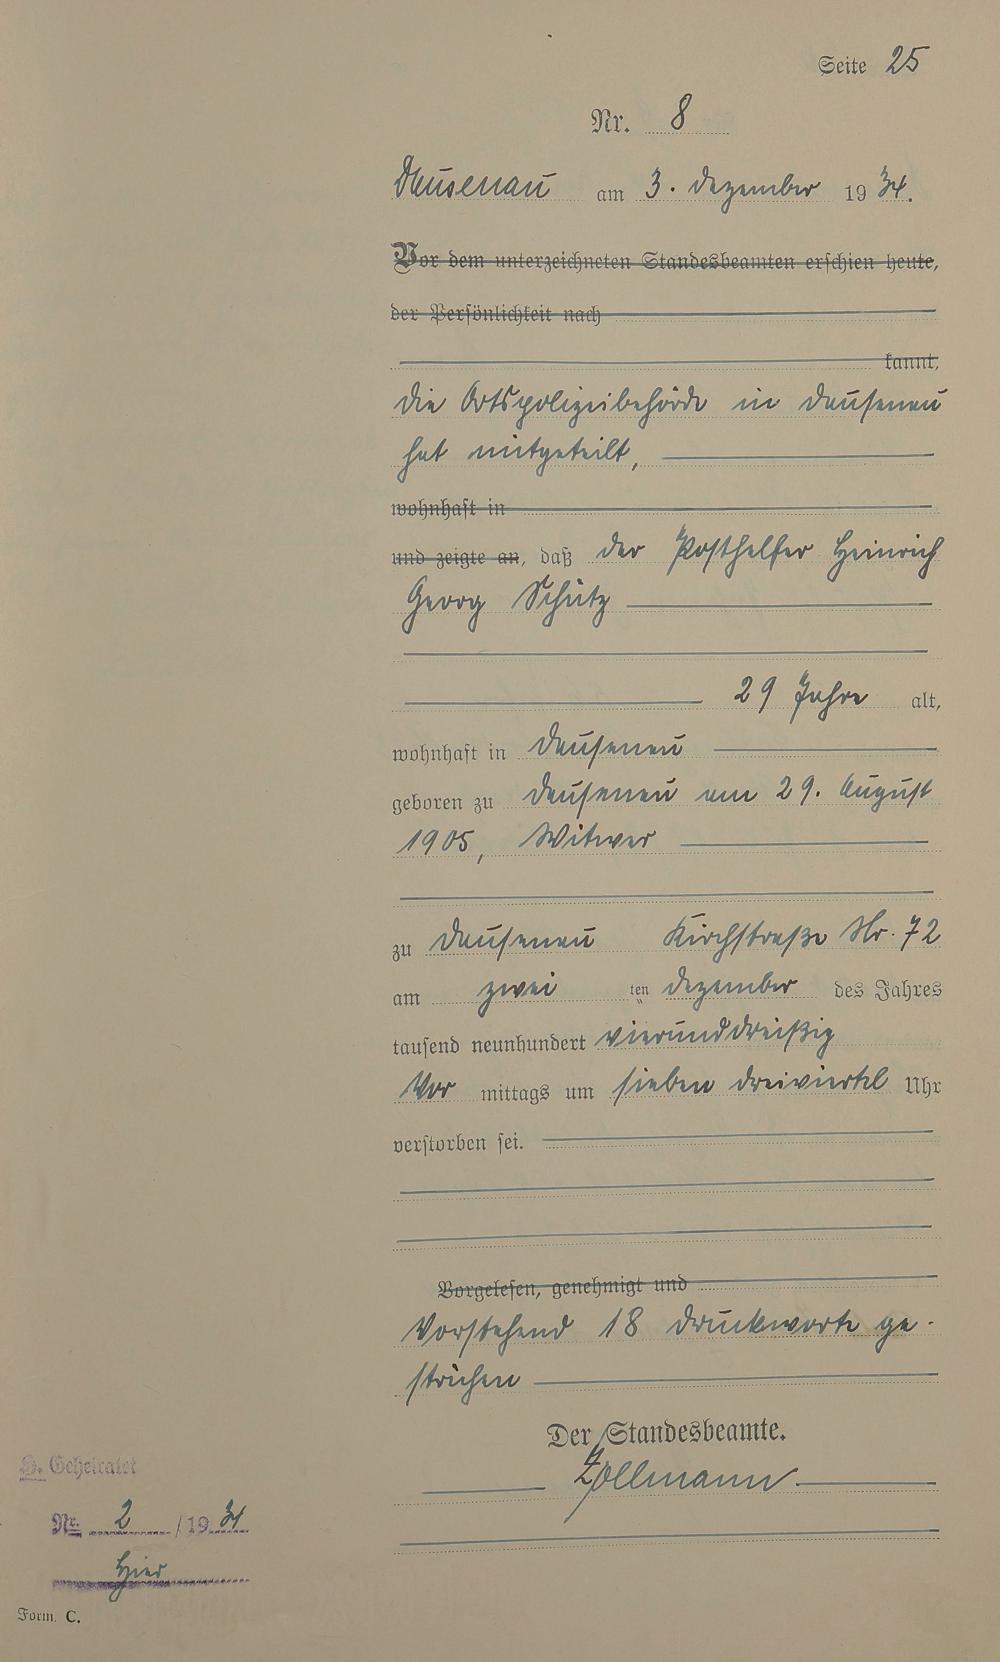 Seite 25
Nr. 8
Dausenau am 3. Dezember 1934.
Vor dem unterzeichneten Standesbeamten erschien heute,
der Persönlichkeit nach
kannt,
die Ortspolizeibehörde in Dausenau
hat mitgeteilt,
wohnhaft in
und zeigte an, daß der Posthelfer Heinrich
Georg Schütz
29 Jahre alt,
wohnhaft in Dausenau
geboren zu Dausenau am 29. August
1905, Witwer
zu Dausenau Kirchstraße Nr. 72
am zwei ten Dezember des Jahres
tausend neunhundert vierunddreißig
Vor mittags um sieben dreiviertel Uhr
verstorben sei.
Vorgelesen, genehmigt und
Vorstehend 18 Druckworte ge-
strichen
Der Standesbeamte.
Zollmann
H. Geheiratet
Nr. 2 / 1931
hier
Form. C.